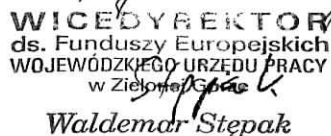 WICEDYREKTOR
ds. Funduszy Europejskich
WOJEWÓDZKIEGO URZĘDU PRACY
w Zielonej Górze
Waldemar Stępak